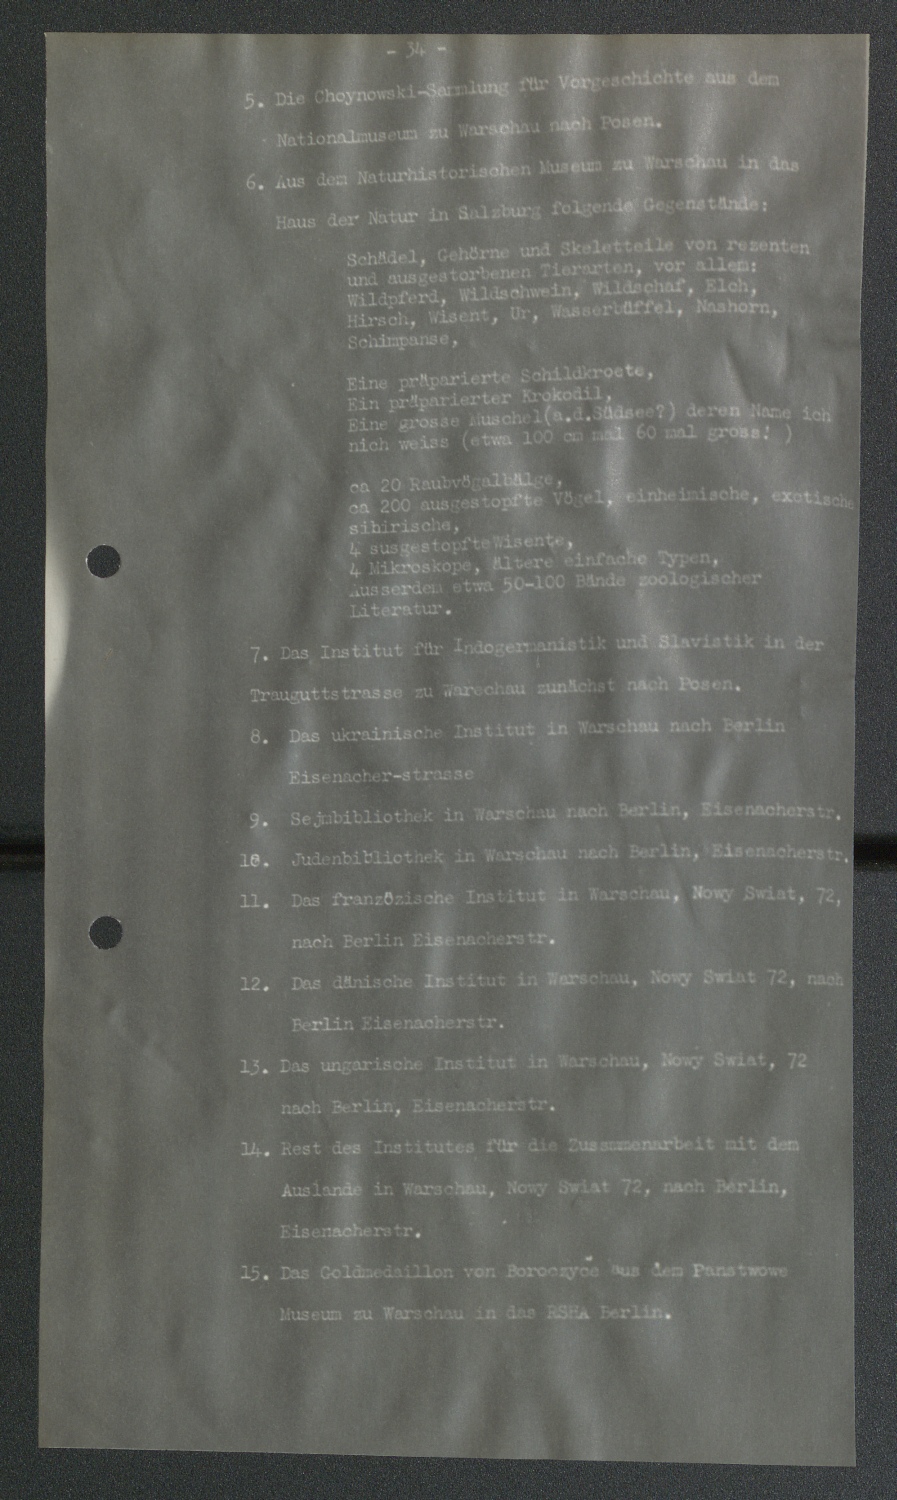 - 34 -
5. Die Choynowski-Sammlung für Vorgeschichte aus dem
Nationalmuseum zu Warschau nach Posen.
6. Aus dem Naturhistorischen Museum zu Warschau in das
Haus der Natur in Salzburg folgende Gegenstände:
Schädel, Gehörne und Skeletteile von rezenten
und ausgestorbenen Tierarten, vor allem:
Wildpferd, Wildschwein, Wildschaf, Elch,
Hirsch, Wisent, Ur, Wasserbüffel, Nashorn,
Schimpanse,
Eine präparierte Schildkroete,
Ein präparierter Krokodil,
Eine grosse Muschel(a.d.Südsee?) deren Name ich
nich weiss (etwa 100 cm mal 60 mal gross! )
ca 20 Raubvögalbälge,
ca 200 ausgestopfte Vögel, einheimische, exotische
sibirische,
4 susgestopfteWisente,
4 Mikroskope, ältere einfache Typen,
Ausserdem etwa 50-100 Bände zoologischer
Literatur.
7. Das Institut für Indogermanistik und Slavistik in der
Trauguttstrasse zu Warschau zunächst nach Posen.
8. Das ukrainische Institut in Warschau nach Berlin
Eisenacher-strasse
9. Sejmbibliothek in Warschau nach Berlin, Eisenacherstr.
10. Judenbibliothek in Warschau nach Berlin, Eisenacherstr.
11. Das französische Institut in Warschau, Nowy Swiat, 72,
nach Berlin Eisenacherstr.
12. Das dänische Institut in Warschau, Nowy Swiat 72, nach
Berlin Eisenacherstr.
13. Das ungarische Institut in Warschau, Nowy Swiat, 72
nach Berlin, Eisenacherstr.
14. Rest des Institutes für die Zusammenarbeit mit dem
Auslande in Warschau, Nowy Swiat 72, nach Berlin,
Eisenacherstr.
15. Das Goldmedaillon von Boroczyce aus dem Panstwowe
Museum zu Warschau in das RSHA Berlin.